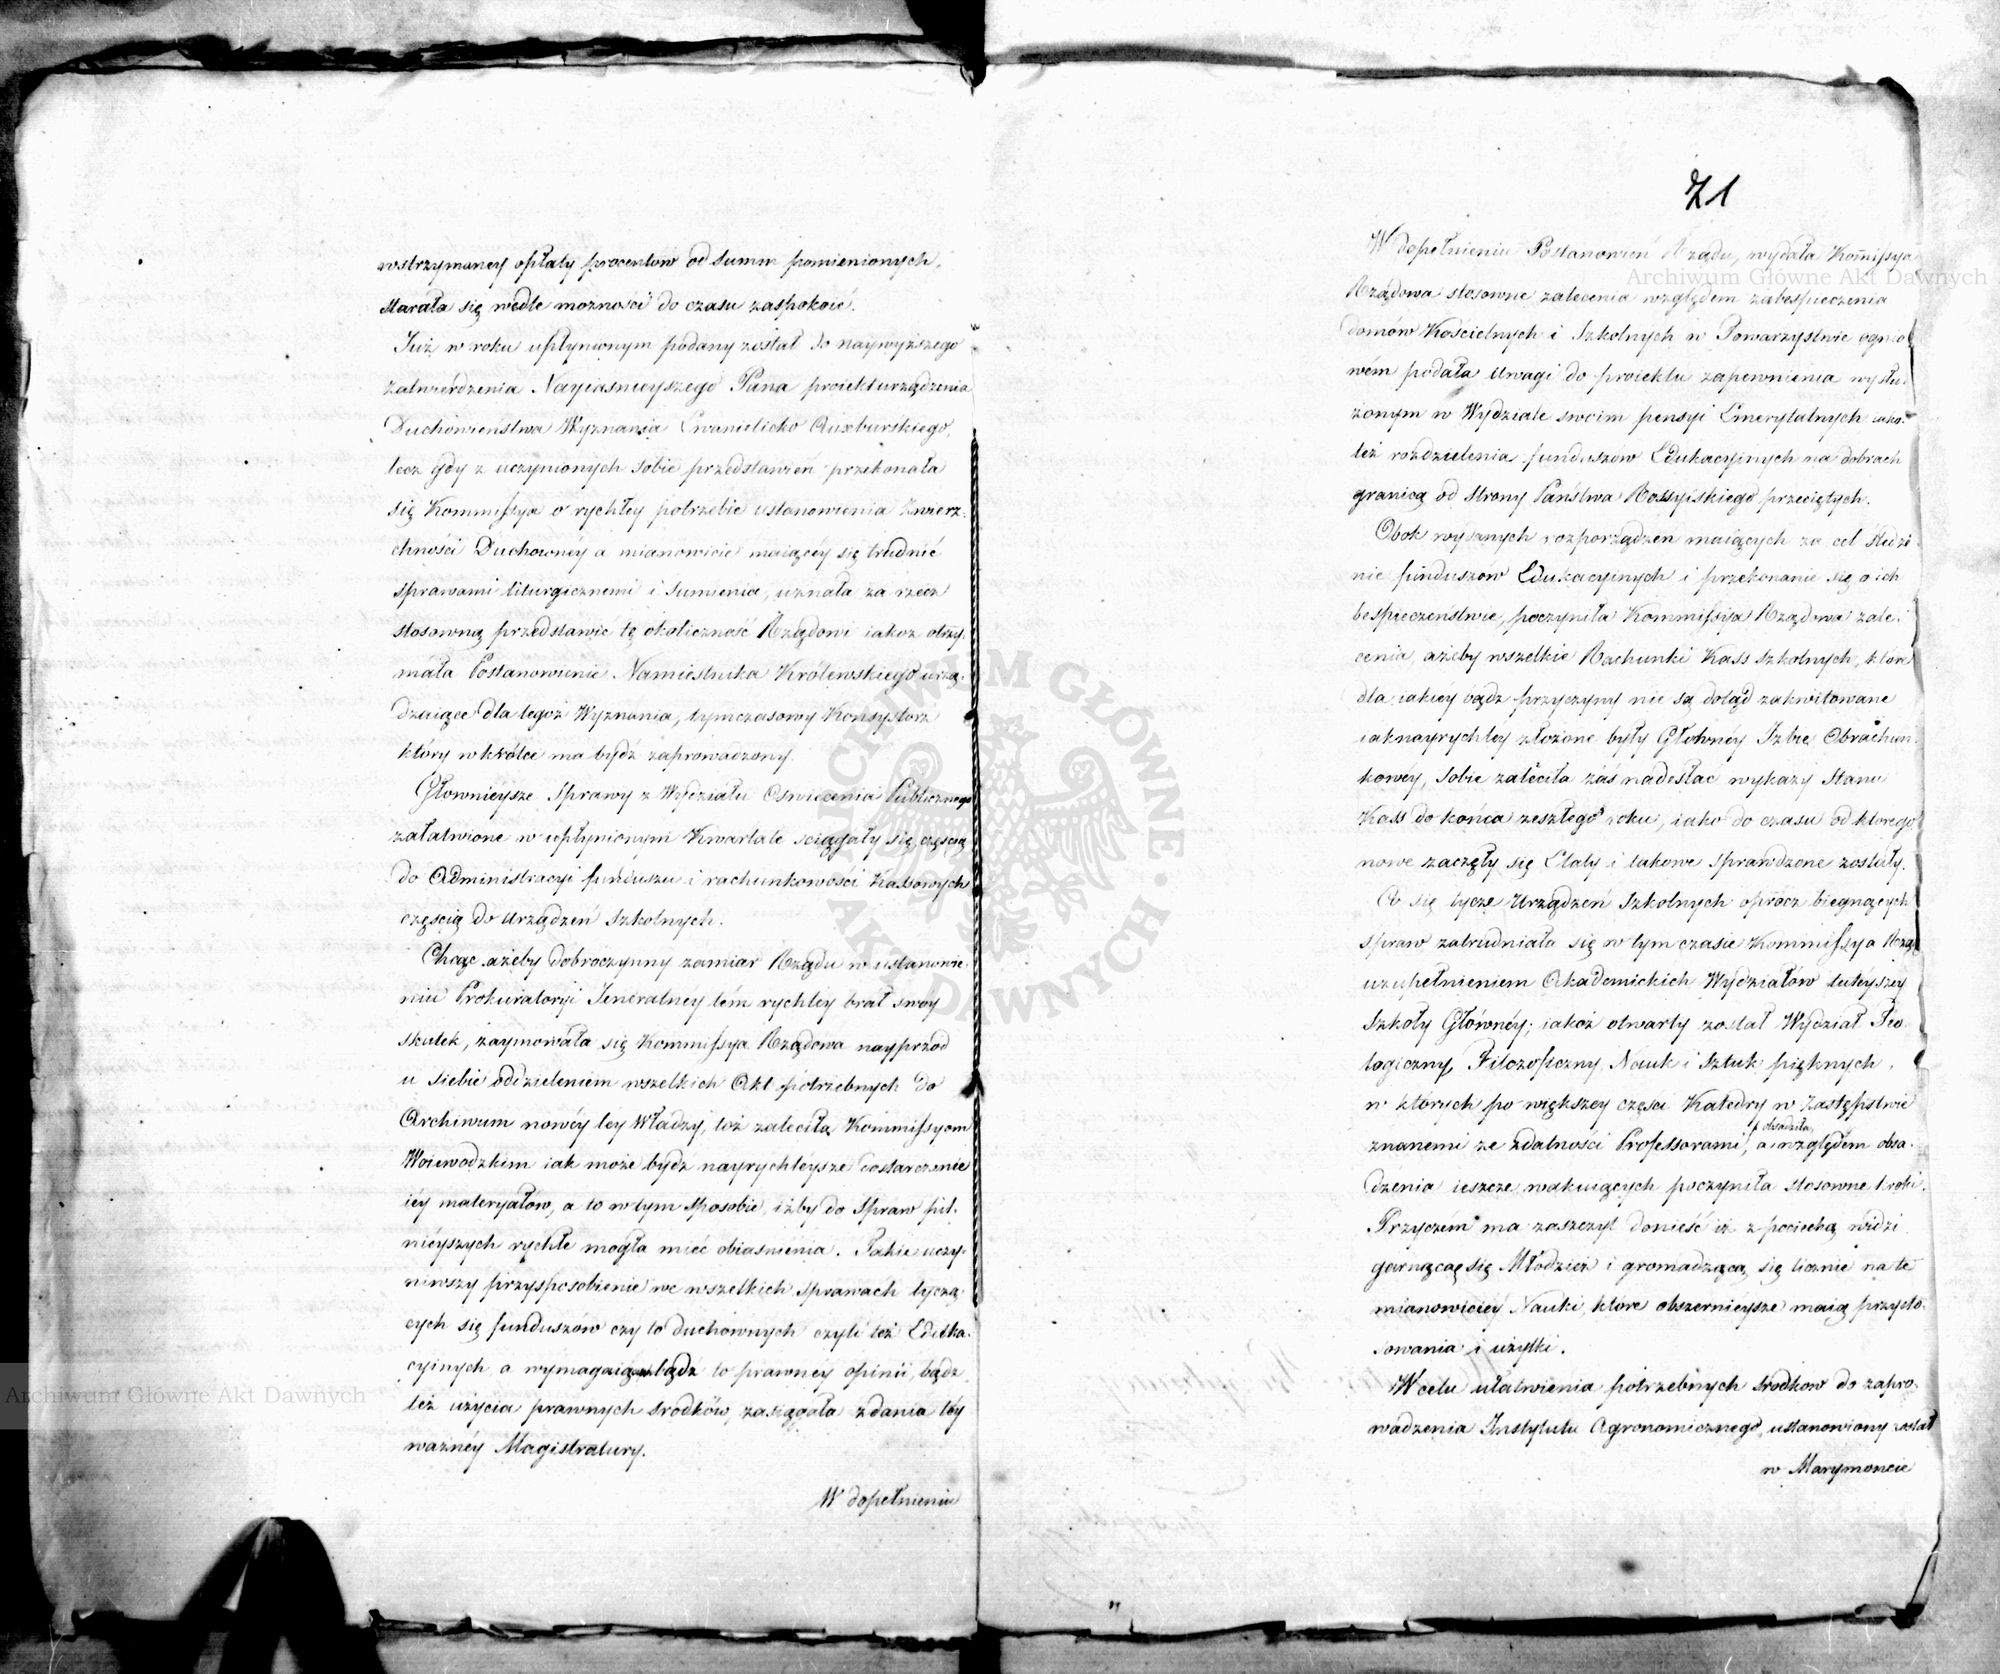 wstrzymaney opłaty procentów od Summ pomienionych,
starała się wedle możności do czasu zaspokoić.
Już w roku upłynionym podany został do naywyższego
zatwierdzenia Nayiasnieyszego Pana proiekt urządzenia
Duchowieństwa Wyznania Ewanielicko Auxburskiego,
lecz gdy z uczynionych sobie przedstawień przekonała
się Kommissya o rychłey potrzebie ustanowienia Zwierz-
chności Duchownéy a mianowicie maiącéy się trudnić
sprawami liturgicznemi i Sumienia, uznała za rzecz
stosowną przedstawić tę okoliczność Rządowi iakoż otrzy-
mała Postanowienie Namiestnika Królewskiego urzą-
dzaiące dla tegoż Wyznania, tymczasowy Konsystorz
który wkrótce ma bydź zaprowadzony.
Głownieysze Sprawy z Wydziału Oswiecenia Publicznego
załatwione w upłynionym Kwartale sciągały się częscią
do Administracyi funduszu i rachunkowości Kassowych
częscią do Urządzeń Szkolnych.
Chcąc ażeby dobroczynny zamiar Rządu w ustanowie-
niu Prokuratoryi Jeneralney tém rychley brał swoy
skutek, zaymowała się Kommissya Rządowa nayprzod
u siebie oddzieleniem wszelkich Akt potrzebnych do
Archiwum nowéy tey Władzy, toż zaleciła Kommissyom
Woiewodzkim iak może bydz nayrychléysze dostarczenie
iéy materyałów, a to w tym sposobie, iżby do Spraw pil-
niéyszych rychłe mogła mieć obiasnienia. Takie uczy-
niwszy przysposobienie we wszelkich sprawach tyczą-
cych się funduszów czy to duchownych czyli też Eduka-
cyinych a wymagaiących bądź to prawney opinii bądz
też użycia prawnych srodków, zasięgała zdania téy
ważnéy Magistratury.
W dopełnieniu
21
W dopełnieniu Postanowień Rządu, wydała Kommissya
Rządowa stosowne zalecenia względem zabespieczenia
domów Kościelnych i Szkolnych w Towarzystwie ognio-
wém podała Uwagi do proiektu zapewnienia wysłu-
żonym w Wydziale swoim pensyi Emerytalnych iako-
też rozdzielenia funduszow Edukacyinych na dobrach
granicą od strony Państwa Rossyiskiego przeciętych.
Obok wydanych rozporządzeń maiących za cel sledze-
nie funduszów Edukacyinych i przekonanie się o ich
bespieczeństwie, poczyniła Kommissya Rządowa zale-
cenia, ażeby wszelkie Rachunki Kass szkolnych, które
dla iakiéy bądz przyczyny nie są dotąd zakwitowane
iaknayrychley złożone były Głowney Izbie Obrachun-
kowéy, sobie zaleciła zaś nadesłać wykazy Stanu
Kass do końca zeszłego roku, iako do czasu od ktorego
nowe zaczęły się Etaty i takowe sprawdzone zostały.
Co się tycze Urządzeń Szkolnych oprócz biegnących
spraw zatrudniała się w tym czasie Kommissya Rzą:
uzupełnieniem Akademickich Wydziałów tuteyszey
Szkoły Główney; iakoż otwarty został Wydział Teo-
logiczny, Filozoficzny, Nauk i Sztuk pięknych,
w których po większey części Katedry w Zastępstwie
obsadziła
znanemi ze zdatności Professorami, a względem obsa-
dzenia ieszcze wakuiących poczyniła stosowne kroki.
Przyczém ma zaszczyt donieść iż z pociechą widzi
garnącąę się Młodzież i gromadzącą się licznie na te
mianowiciéy Nauki, które obszernieysze maią przysto-
sowania i użytki.
W celu ułatwienia potrzebnych srodkow do zapro-
wadzenia Instytutu Agronomicznego, ustanowiony został
w Marymoncie
Archiwum Główne Akt Dawnych
Archiwum Główne Akt Dawnych
ARCHIWUM GŁÓWNE AKT DAWNYCH